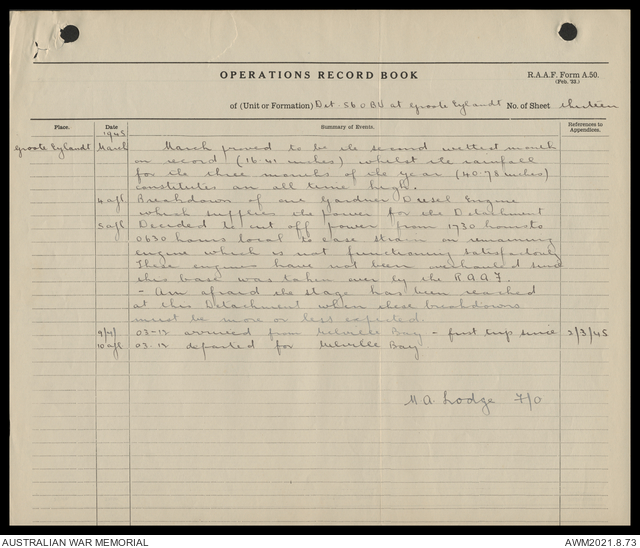 OPERATIONS RECORD BOOK
R.A.A.F. Form A.50.
(Feb. '23.)
of (Unit or Formation) Det. 56 OBU at Groote Eylandt No. of Sheet thirteen
Place. Date Summary of Events. References to Appendices.
1945
Groote Eylandt March March proved to be the second wettest month
on record (16.41 inches) whilst the rainfall
for the three months of the year (40.78 inches)
constitutes an all time high.
4 apl Breakdown of one Gardner Diesel Engine
which supplies the power for the Detachment
5 apl Decided to cut off power from 1730 hours to
0630 hours local to ease strain on remaining
engine which is not functioning satisfactorily
These engines have not been overhauled since
this base was taken over by the RAAF.
- Am afraid the stage has been reached
at this Detachment when these breakdowns
must be more or less expected.
9/4/ 03-12 arrived from Melville Bay - first trip since 2/3/45
10 apl 03.12 departed for Melville Bay
M A. Lodge F/O
AUSTRALIAN WAR MEMORIAL
AWM2021.8.73